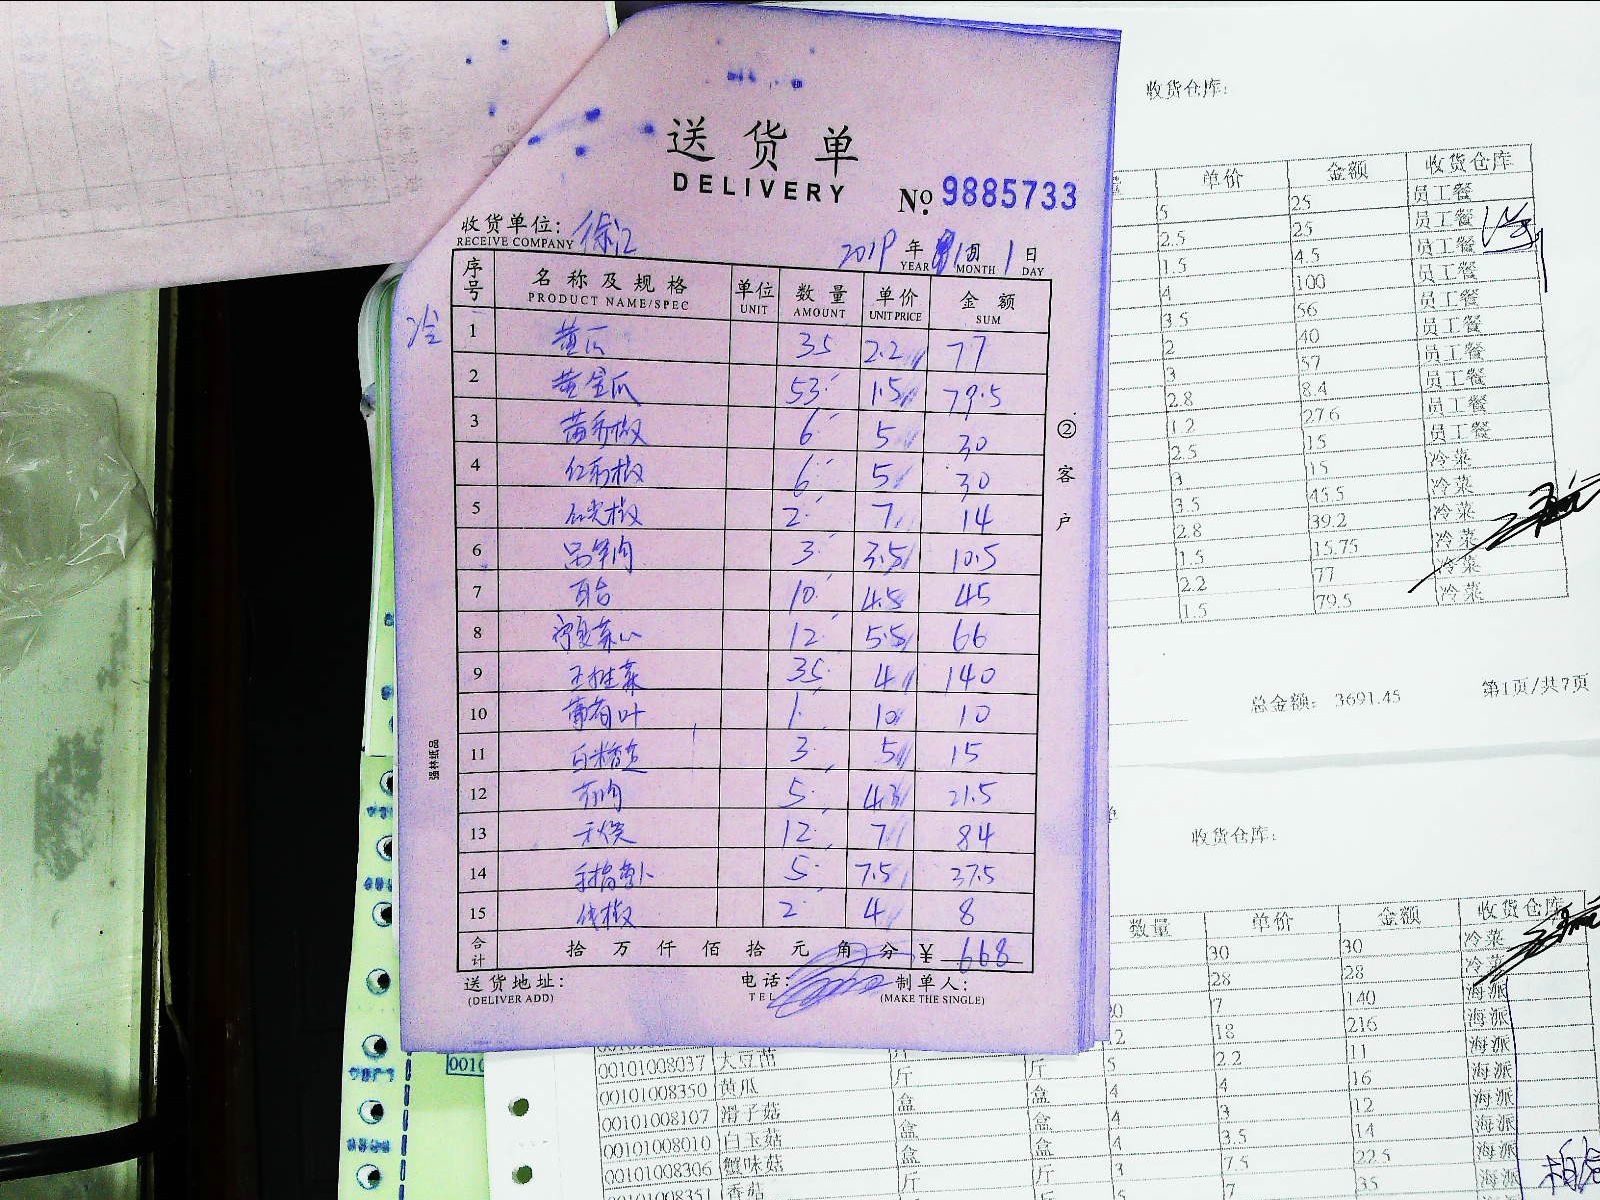 送货单
DELIVERY
No. 9885733
收货单位: 徐汇
RECEIVE COMPANY
2019 年 1 月 1 日
YEAR MONTH DAY
冷
序号 名称及规格 单位 数量 单价 金额
PRODUCT NAME/SPEC UNIT AMOUNT UNIT PRICE SUM
1 黄瓜 35 2.2 77
2 黄金瓜 53 1.5 79.5
3 黄彩椒 6 5 30
4 红彩椒 6 5 30
5 红尖椒 2 7 14
6 3 3.5 10.5
7 百合 10 4.5 45
8 宁夏菜心 12 5.5 66
9 35 4 140
10 葡萄叶 1 10 10
11 3 5 15
12 5 4.3 21.5
13 12 7 84
14 5 7.5 37.5
15 2 4 8
合计 拾 万 仟 佰 拾 元 角 分 ¥ 668
送货地址: 电话: 制单人:
(DELIVER ADD) TEL (MAKE THE SINGLE)
②客户
强林纸品
收货仓库:
单价 金额 收货仓库
5 25 员工餐
2.5 25 员工餐
1.5 4.5 员工餐
4 100 员工餐
3.5 56 员工餐
2 40 员工餐
3 57 员工餐
2.8 8.4 员工餐
1.2 27.6 员工餐
2.5 15 员工餐
3 15 冷菜
3.5 45.5 冷菜
2.8 39.2 冷菜
1.5 15.75 冷菜
2.2 77 冷菜
1.5 79.5 冷菜
总金额: 3691.45 第1页/共7页
收货仓库:
数量 单价 金额 收货仓库
30 30 冷菜
28 28 冷菜
7 140 海派
18 216 海派
00101008037 大豆苗 斤 斤 5 2.2 11 海派
00101008350 黄瓜 盒 盒 4 4 16 海派
00101008107 滑子菇 盒 盒 4 3 12 海派
00101008010 白玉菇 盒 盒 4 3.5 14 海派
00101008306 蟹味菇 斤 斤 3 7.5 22.5 海派
00101008351 香菇 5 7 35 海派